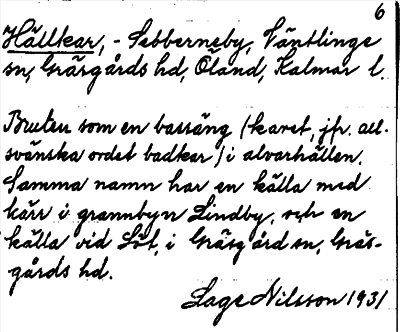 6
Hällkar, - Sebberneby, Väntlinge
sn, Gräsgårds hd, Öland, Kalmar l.
Bruten som en bassäng (karet, jfr. all-
svänska ordet badkar) i alvarhällen.
Samma namn har en källa med
kärr i grannbyn Lindby, och en
källa vid Löt, i Gräsgård sn, Gräs-
gårds hd.
Lage Nilsson 1931